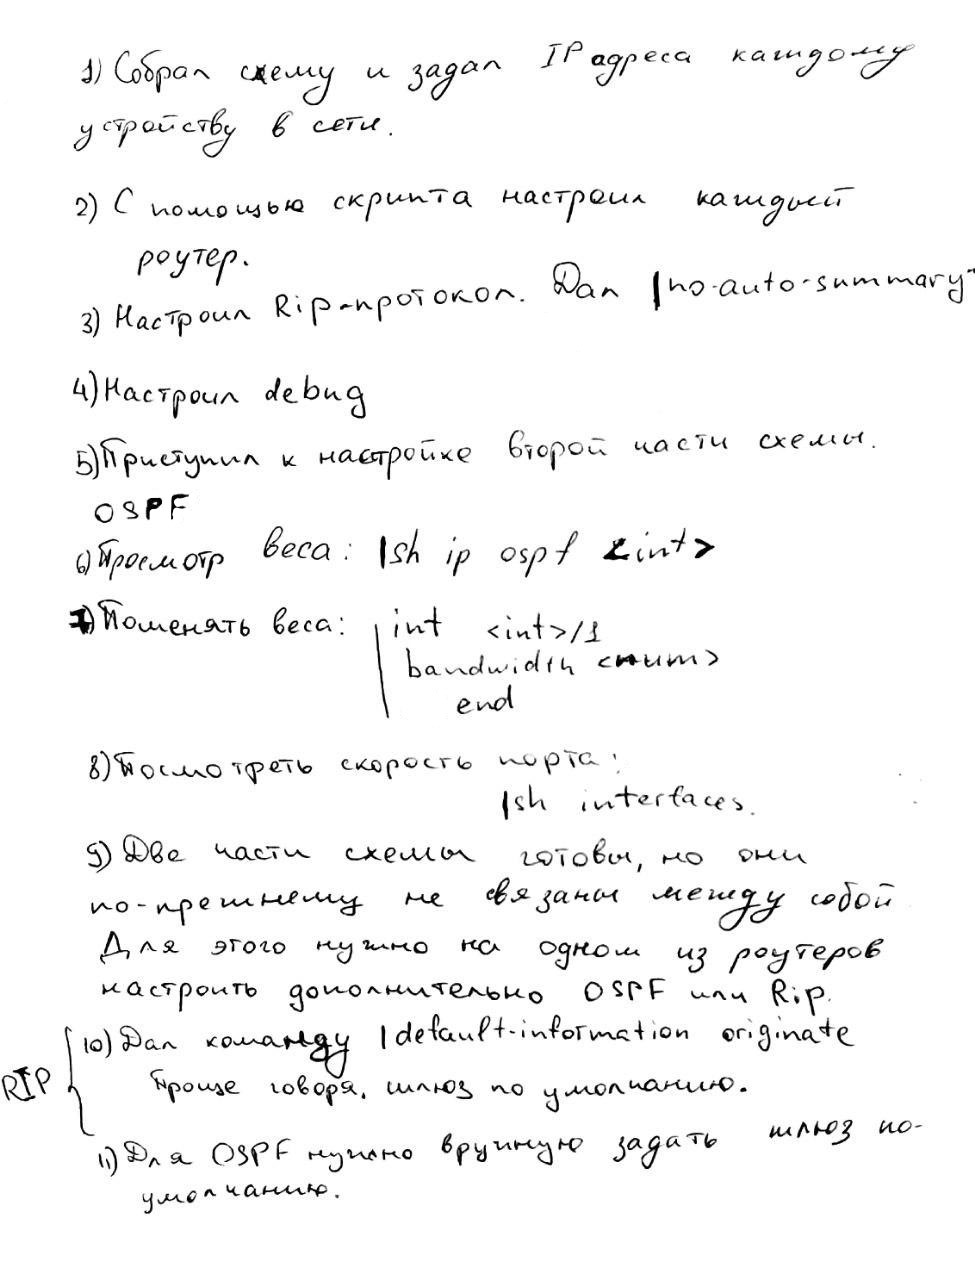 1) Собрал схему и задал IP адреса каждому
устройству в сети.
2) С помощью скрипта настроил каждый
роутер.
3) Настроил Rip-протокол. Дал |no-auto-summary
4) Настроил debug
5) Приступил к настройке второй части схемы.
OSPF
6) Просмотр веса: |sh ip ospf <int>
7) Поменять веса: | int <int>/1
bandwidth <num>
end
8) Посмотреть скорость порта:
|sh interfaces.
9) Две части схемы готовы, но они
по-прежнему не связаны между собой
Для этого нужно на одном из роутеров
настроить дополнительно OSPF или Rip.
10) Дал команду |default-information originate
RIP
Проще говоря, шлюз по умолчанию.
11) Для OSPF нужно вручную задать шлюз по-
умолчанию.